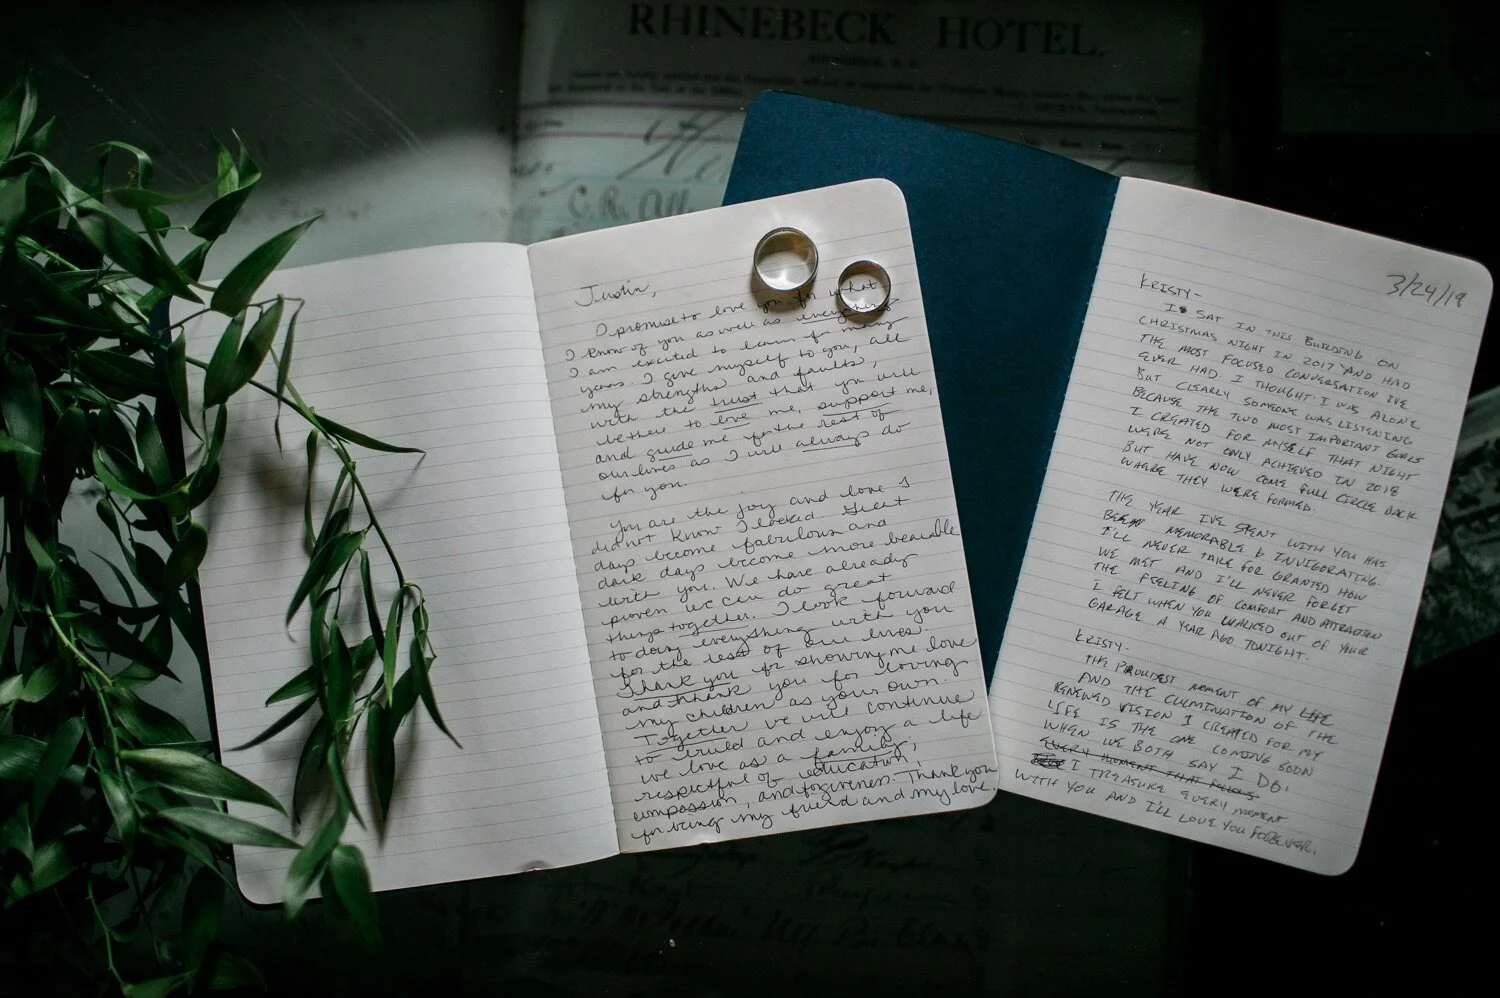 RHINEBECK HOTEL.
RHINEBECK, N. Y.
C. R.
Justin,
I promise to love you for what
I know of you as well as everything
I am excited to learn for many
years. I give myself to you, all
my strengths and faults,
with the trust that you will
be there to love me, support me,
and guide me for the rest of
our lives as I will always do
for you.
You are the joy and love I
did not know I looked. Great
days become fabulous and
dark days become more bearable
with you. We have already
proven we can do great
things together. I look forward
to doing everything with you
for the rest of our lives.
Thank you for showing me love
and thank you for loving
my children as your own.
Together we will continue
to build and enjoy a life
we love as a family,
respectful of education,
compassion, and forgiveness. Thank you
for being my friend and my love.
3/24/19
KRISTY-
I SAT IN THIS BUILDING ON
CHRISTMAS NIGHT IN 2017 AND HAD
THE MOST FOCUSED CONVERSATION I'VE
EVER HAD. I THOUGHT I WAS ALONE
BUT CLEARLY SOMEONE WAS LISTENING
BECAUSE THE TWO MOST IMPORTANT GOALS
I CREATED FOR MYSELF THAT NIGHT
WERE NOT ONLY ACHIEVED IN 2018
BUT HAVE NOW COME FULL CIRCLE BACK
WHERE THEY WERE FORMED.
THE YEAR I'VE SPENT WITH YOU HAS
BEEN MEMORABLE & INVIGORATING.
I'LL NEVER TAKE FOR GRANTED HOW
WE MET AND I'LL NEVER FORGET
THE FEELING OF COMFORT AND ATTRACTION
I FELT WHEN YOU WALKED OUT OF YOUR
GARAGE A YEAR AGO TONIGHT.
KRISTY-
THE PROUDEST MOMENT OF MY LIFE
AND THE CULMINATION OF THE
RENEWED VISION I CREATED FOR MY
LIFE IS THE ONE COMING SOON
WHEN WE BOTH SAY I DO.
EVERY MOMENT THAT FOLLOWS
I TREASURE EVERY MOMENT
WITH YOU AND I'LL LOVE YOU FOREVER.